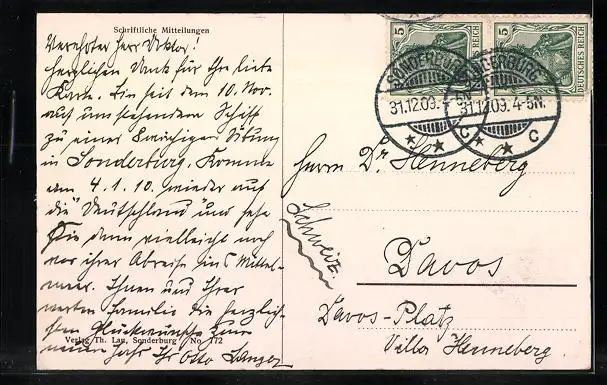 Schriftliche Mitteilungen
Verehrter Herr Doktor!
Herzlichen Dank für Ihre liebe
Karte. Bin seit dem 10. Nov.
auf umstehendem Schiff
zu einer Übung
in Sonderburg. Komme
am 4.1.10. wieder auf
die "Deutschland" und sehe
Sie dann vielleicht noch
vor ihrer Abreise ins Mittel-
meer. Ihnen und Ihrer
werten Familie die herzlich-
sten Glückwünsche zum
Verlag Th. Lau, Sonderburg No. 772
neuen Jahr Ihr Otto
5 5
DEUTSCHES REICH
SONDERBURG
31.12.09.4-5N.
C
SONDERBURG
31.12.09.4-5N.
C
Herrn Dr. Henneberg
Schweiz.
Davos
Davos-Platz
Villa Henneberg.